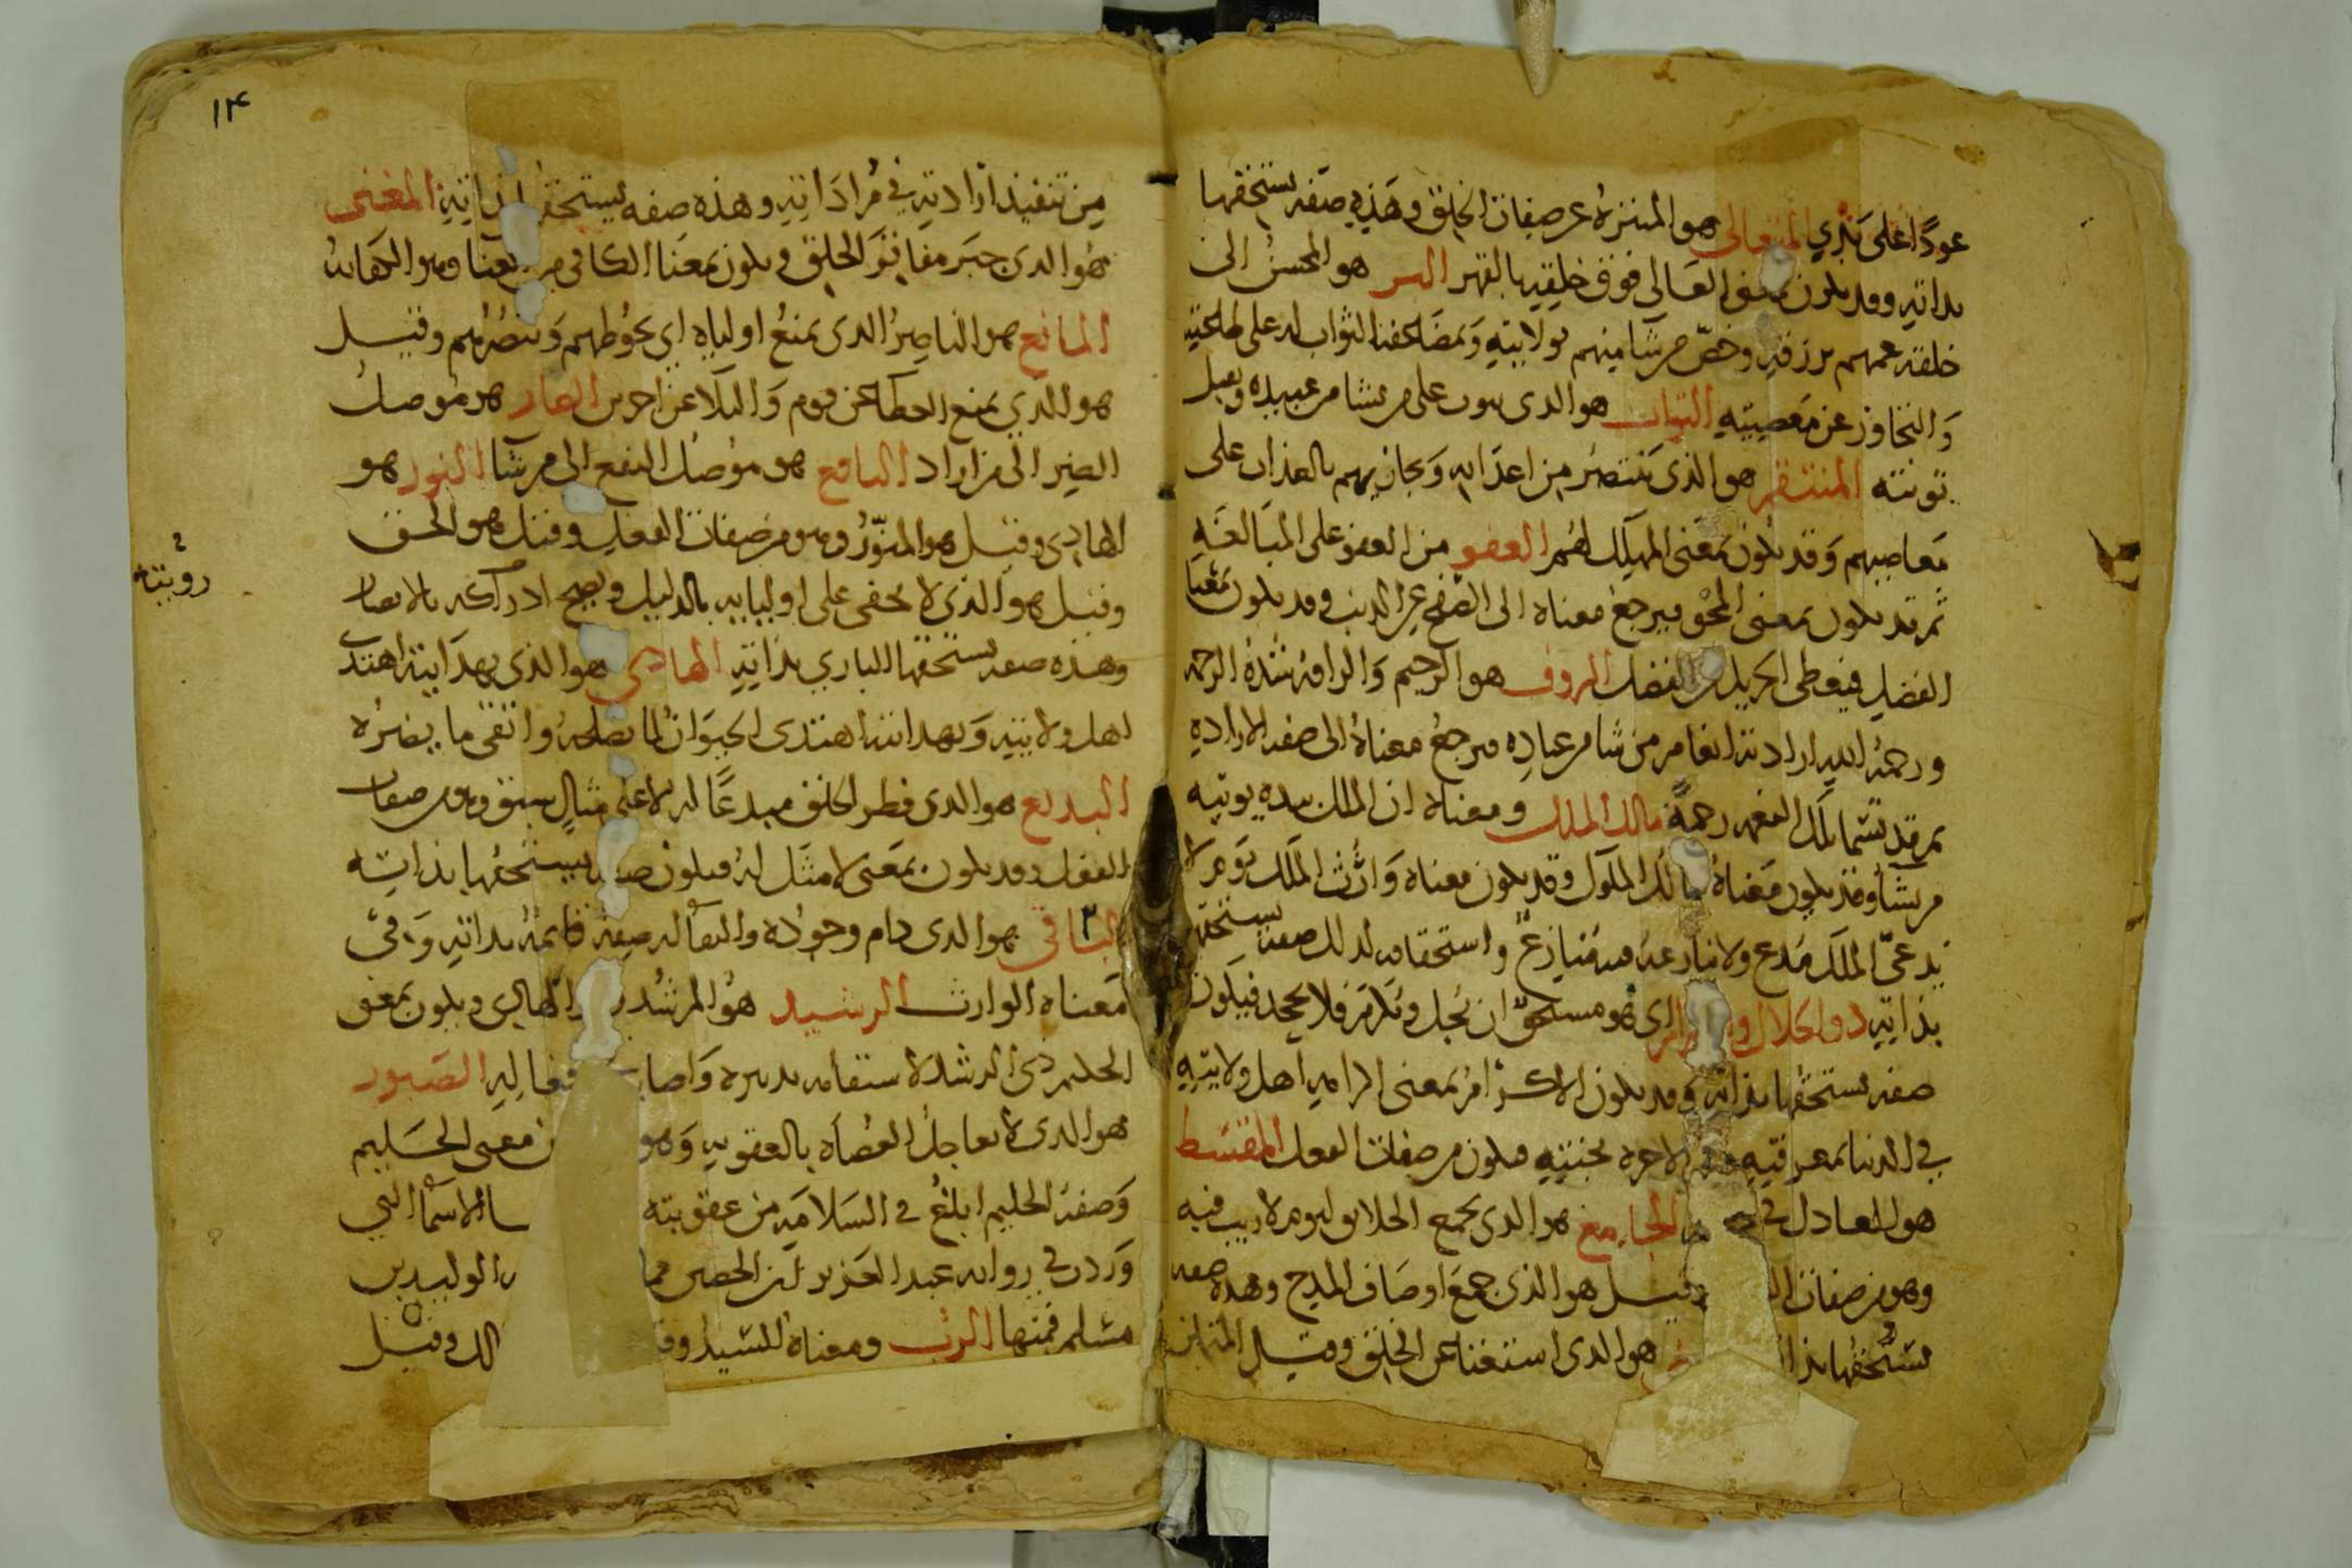 عودًا على بدي المتعالى هو المنزه عن صفات الخلق وهذه صفه يستحقها
بذاته وقد يكون بمعنى العالي فوق خلقه بالقهر البر هو المحسن الى
خلقه عمهم برزقه وخص من شا منهم بولايته وبمضاعفه الثواب له على طاعته
والتجاوز عن معصيته التواب هو الذى يتوب على من يشا من عبيده ويقبل
توبته المنتقم هو الذى ينتصر من اعدايه ويجازيهم بالعذاب على
معاصيهم وقد يكون بمعنى المهلك لهم العفو من العفو على المبالغه
ثم قد يكون بمعنى المحو فيرجع معناه الى الصفح عن الذنب وقد يكون بمعنا
الفضل فيعطى الجزيل من الفضل الروف هو الرحيم والرافه شدة الرحمه
ورحمة الله ارادته انعامه من شا من عباده فيرجع معناه الى صفه الاراده
ثم قد تسما تلك النعمه رحمة مالك الملك ومعناه ان الملك بيده يوتيه
من يشا وقد يكون معناه مالك الملوك وقد يكون معناه وارث الملك يوم لا
يدعي الملك مدع ولا ينازعه فيه منازع واستحقاقه لذلك صفه يستحقها
بذاته ذو الجلال و اى هو مستحق ان يجل ويكرم فلا يجحد فيكون
صفه يستحقها بذاته وقد يكون الاكرام بمعنى اكرامه اهل ولايته
في الدنيا بمعرفته وفي الاخره بجنته فيكون من صفات الفعل المقسط
هو العادل في الجامع هو الذى يجمع الخلايق ليوم لا ريب فيه
وهو من صفات وقيل هو الذى جمع اوصاف المدح وهذه صفه
يستحقها هو الذى استغنا عن الخلق وقيل المتمكن
١٣
من تنفيذ ارادته في مراداته وهذه صفه يستحقها بذاته المغنى
هو الذى جبر مفاقر الخلق ويكون بمعنا الكافى من الغنا وهو الكفايه
المانع هو الناصر الذى يمنع اولياه اى يحوطهم وينصرهم وقيل
هو الذي يمنع العطا عن قوم والبلا عن اخرين الضار هو موصل
الضر الى من اراد النافع هو موصل النفع الى من شا النور هو
الهادى وقيل هو المنور وهو من صفات الفعل وقيل هو الحق
وقيل هو الذى لا يخفى على اوليايه بالدليل ويصح ادراكه بالابصار
رويته
وهذه صفه يستحقها الباري بذاته الهادى هو الذى بهدايته اهتدى
اهل ولايته وبهدايته اهتدى الحيوان لما يصلحه واتقى ما يضره
البديع هو الذى فطر الخلق مبدعًا له لا على مثال سبق وهو من صفات
الفعل وقد يكون بمعنى لا مثل له فيكون صفه يستحقها بذاته
الباقى هو الذى دام وجوده والبقا له صفة قايمة بذاته وفى
معناه الوارث الرشيد هو المرشد الهادى ويكون بمعنى
الحكيم ذى الرشد لاستقامه تدبيره افعاله الصبور
هو الذى لا يعاجل العصاه بالعقوبه وهو من معنى الحليم
وصفة الحليم ابلغ في السلامه من عقوبته الاسما التي
وردت في روايه عبد العزيز بن الحصين الوليد بن
مسلم فمنها الرب ومعناه السيد وقيل